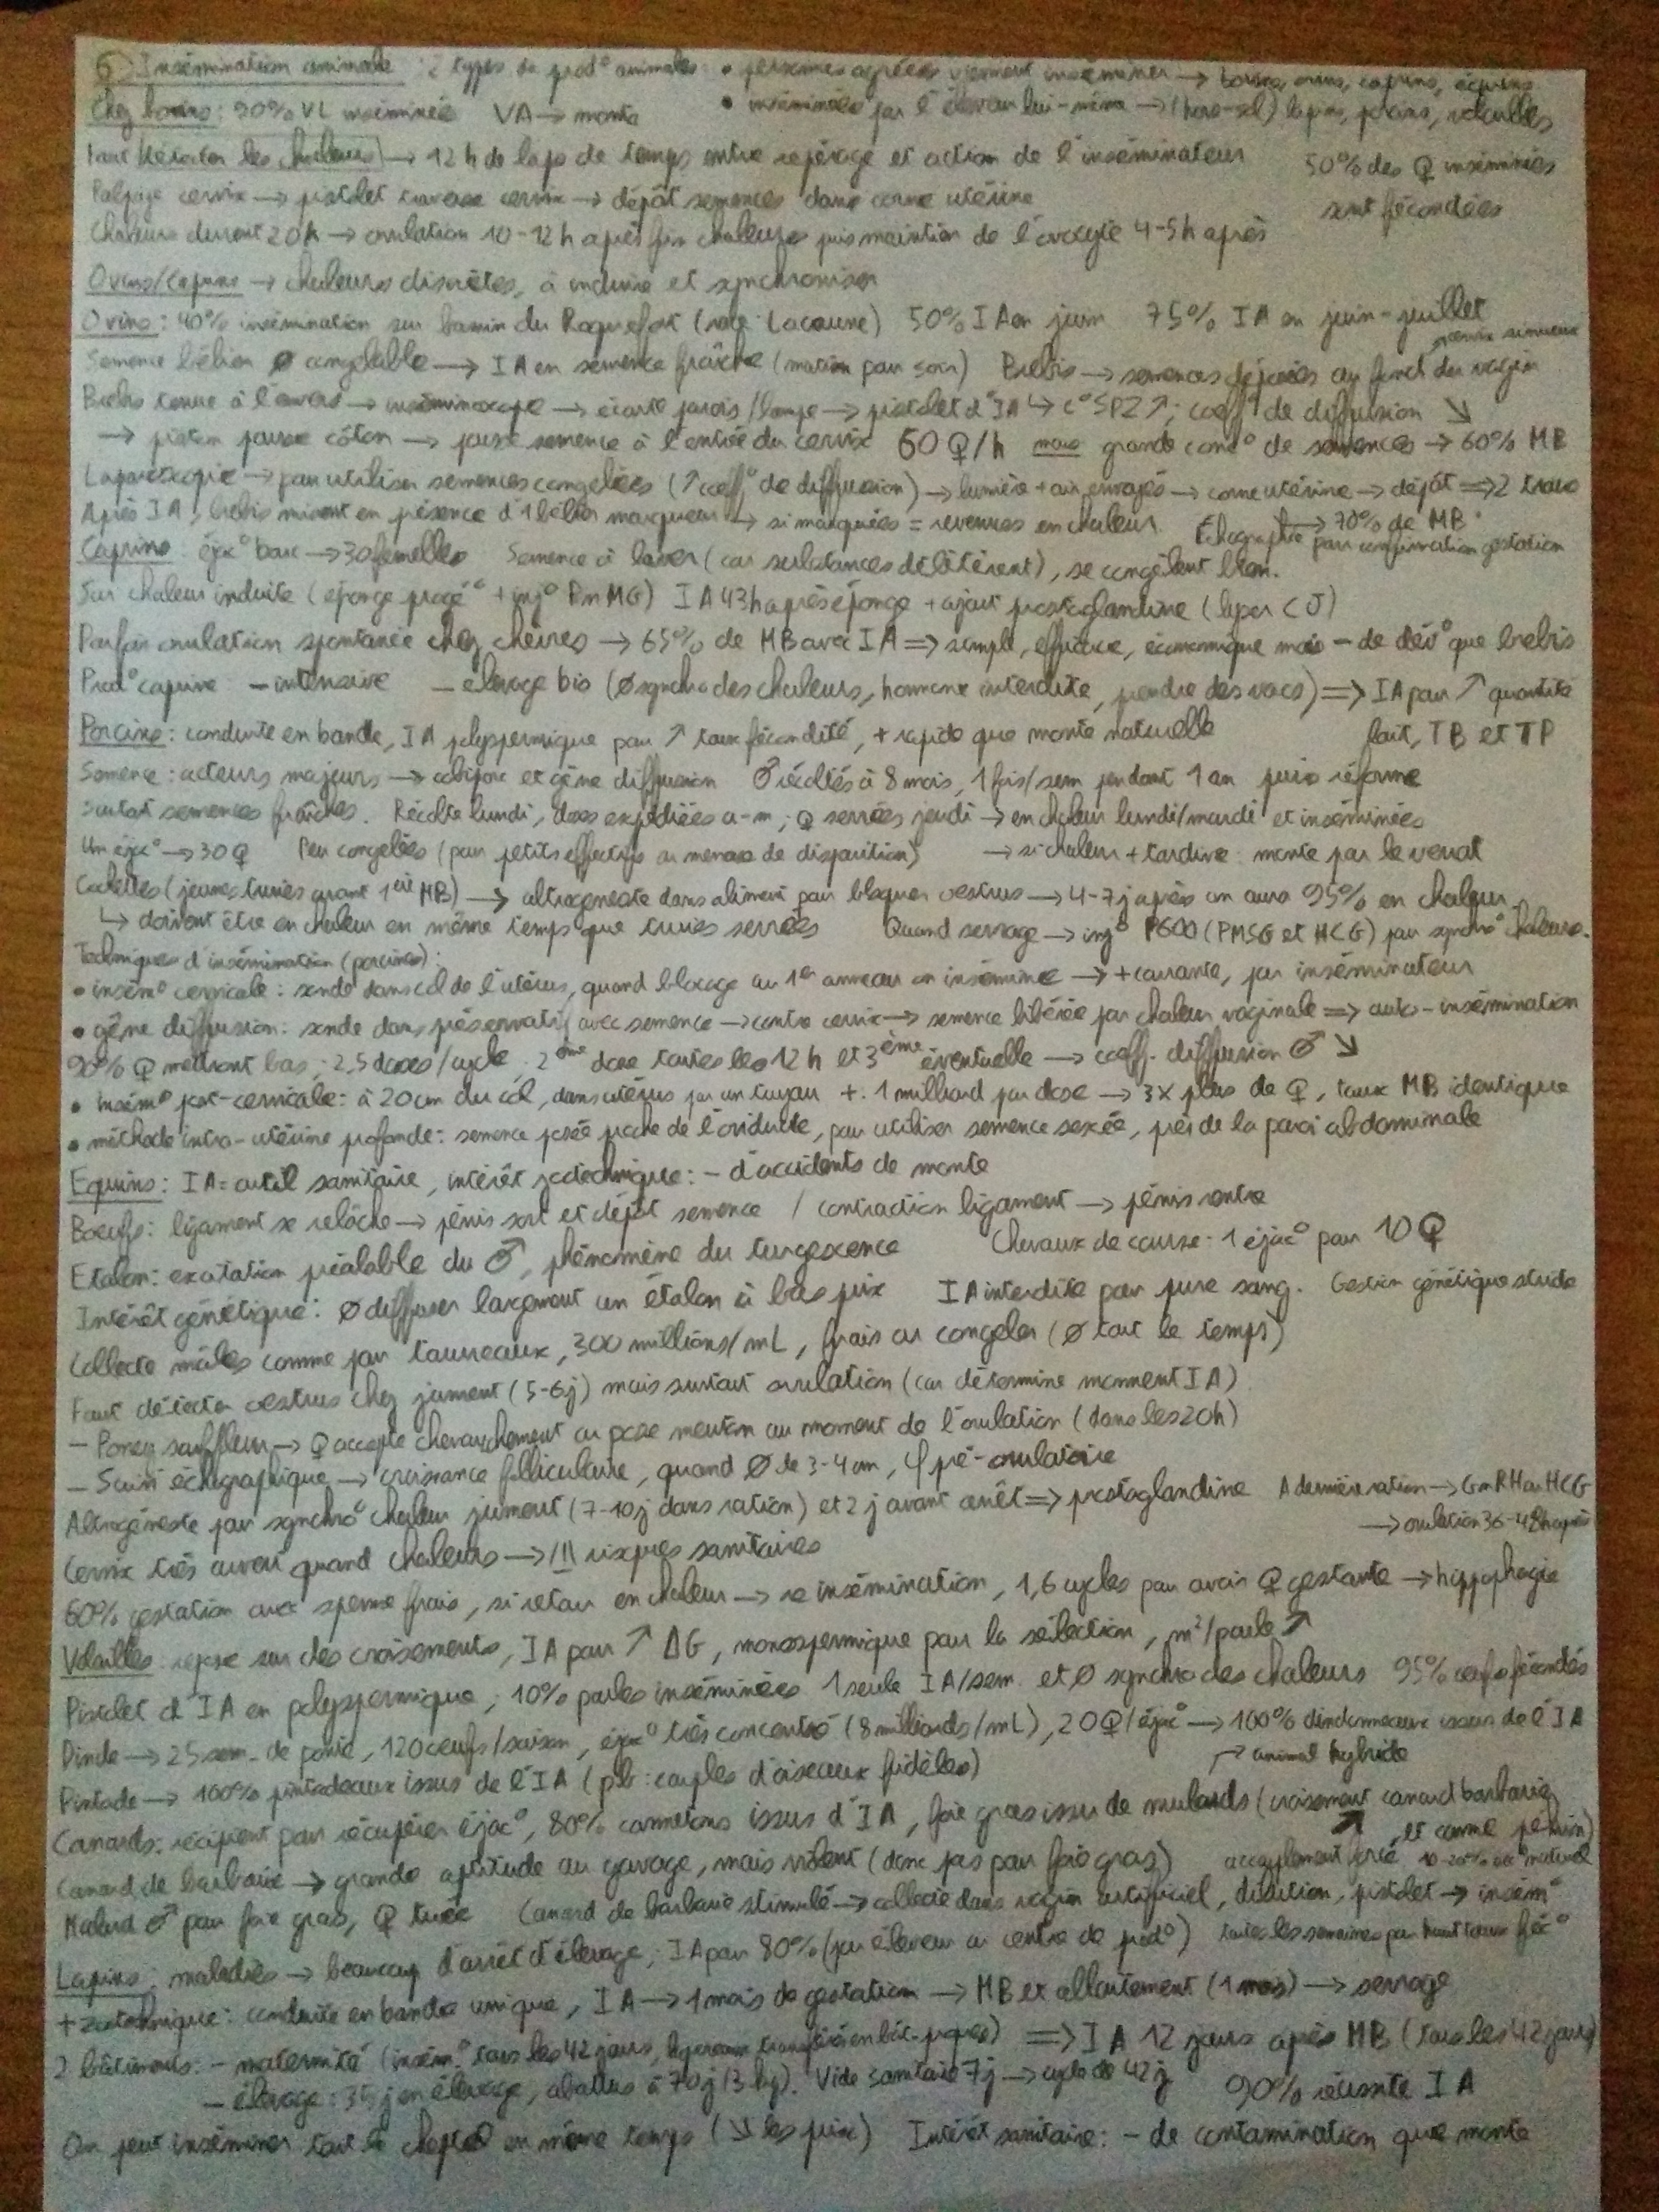 ⑥ Insémination animale : 2 types de prod° animales : • personnes agréées viennent inséminer → bovins, ovins, caprins, équins
Chez bovins : 90% VL inséminées VA → monte • inséminées par l'éleveur lui-même → (hors-sol) lapins, porcins, volailles
Faut détecter les chaleurs → 12 h de laps de temps entre repérage et action de l'inséminateur 50% des ♀ inséminées
Palpage cervix → pistolet traverse cervix → dépôt semences dans corne utérine sont fécondées
Chaleurs durent 20h → ovulation 10-12 h après fin chaleurs puis maturation de l'ovocyte 4-5h après
Ovins/Caprins → chaleurs discrètes, à induire et synchroniser
Ovins : 40% insémination sur bassin du Roquefort (race : Lacaune) 50% IA en juin 75% IA en juin-juillet
cervix sinueux
Semence bélier ∅ congelable → IA en semence fraîche (matin pour soir) Brebis → semences déposées au fond du vagin
Brebis tenue à l'envers → inséminoscope → écarte parois/lampe → pistolet d'IA ↳ c° SPZ ↗, coeff° de diffusion ↘
→ piston pousse côton → pousse semence à l'entrée du cervix 60 ♀/h mais grande cons° de semences → 60% MB
Laparoscopie → pour utiliser semences congelées (↗ coeff° de diffusion) → lumière + air envoyés → corne utérine → dépôt ⇒ 2 trous
Après IA, brebis mises en présence d'1 bélier marqueur → si marquées = revenues en chaleur ↳ 70% de MB
Echographie pour confirmation gestation
Caprins : éjac° bouc → 30 femelles Semence à laver (car substances délétèrent), se congèlent bien.
Sur chaleur induite (éponge progé° + inj° PMMG) IA 43h après éponge + ajout prostaglandine (lyser CJ)
Parfois ovulation spontanée chez chèvres → 65% de MB avec IA ⇒ simple, efficace, économique mais - de dév° que brebis
Prod° caprine - intensive - élevage bio (∅ synchro des chaleurs, hormone interdite, prendre des vacs) ⇒ IA pour ↗ quantité
lait, TB et TP
Porcins : conduite en bande, IA polyspermique pour ↗ taux fécondité, + rapide que monte naturelle
Semence : acteurs majeurs → cobiporc et gène diffusion ♂ récoltés à 8 mois, 1 fois/sem pendant 1 an puis réforme
Surtout semences fraîches. Récolte lundi, doses expédiées a-m, ♀ sevrées jeudi → en chaleur lundi/mardi et inséminées
Un éjac° → 30 ♀ Peu congelées (pour petits effectifs ou menace de disparition) → si chaleur + tardive : monte par le verrat
Cochettes (jeunes truies avant 1ère MB) → altrogeneste dans aliment pour bloquer oestrus → 4-7 j après on aura 95% en chaleur
↳ doivent être en chaleur en même temps que truies sevrées Quand sevrage → inj° P600 (PMSG et HCG) pour synchro° chaleurs.
Techniques d'insémination (porcines) :
• insém° cervicale : sonde dans col de l'utérus, quand blocage au 1er anneau on insémine → + courante, par inséminateur
• gène diffusion : sonde dans préservatif avec semence → contre cervix → semence libérée par chaleur vaginale ⇒ auto-insémination
90% ♀ mettront bas ; 2,5 doses/cycle. 2ème dose toutes les 12 h et 3ème éventuelle → coeff. diffusion ♂ ↘
• insém° post-cervicale : à 20 cm du col, dans utérus par un tuyau +. 1 milliard par dose → 3x plus de ♀, taux MB identique
• méthode intra-utérine profonde : semence posée proche de l'oviducte, pour utiliser semence sexée, près de la paroi abdominale
Equins : IA = outil sanitaire, intérêt zootechnique : - d'accidents de monte
Boeufs : ligament se relâche → pénis sort et dépôt semence / contraction ligament → pénis rentre
Etalon : excitation préalable du ♂, phénomène du turgescence Chevaux de course : 1 éjac° pour 10 ♀
Intérêt génétique : ∅ diffuser largement un étalon à bas prix IA interdite pour pure sang. Gestion génétique stricte
Collecte mâles comme pour taureaux, 300 millions/mL, frais ou congeler (∅ tout le temps)
Faut détecter oestrus chez jument (5-6j) mais surtout ovulation (car détermine moment IA)
- Poney souffleur → ♀ accepte chevauchement ou pose menton au moment de l'ovulation (dans les 20h)
- Suivi échographique → croissance folliculaire, quand ∅ de 3-4 cm, φ pré-ovulatoire
Altrogéneste pour synchro° chaleur jument (7-10j dans ration) et 2 j avant arrêt ⇒ prostaglandine A dernière ration → GnRH ou HCG
→ ovulation 36-48h après
Cervix très ouvert quand chaleurs → /!\ risques sanitaires
60% gestation avec sperme frais, si retour en chaleur → réinsémination, 1,6 cycles pour avoir ♀ gestante → hippophagie
Volailles repose sur des croisements, IA pour ↗ ΔG, monospermique pour la sélection, m²/poule ↗
Pistolet d'IA en polyspermique, 10% poules inséminées 1 seule IA/sem. et ∅ synchro des chaleurs 95% oeufs fécondés
Dinde → 25 sem. de ponte, 120 oeufs/saison, éjac° très concentré (8 milliards/mL), 20 ♀/éjac° → 100% dindonneaux issus de l'IA
Pintade → 100% pintadeaux issus de l'IA (pb : couples d'oiseaux fidèles) → animal hybride
Canards : récipient pour récupérer éjac°, 80% cannetons issus d'IA, foie gras issu de mulards (croisement canard barbarie
et canne pékin)
Canard de barbarie → grande aptitude au gavage, mais violent (donc pas pour foie gras) accouplement forcé 10-20% en naturel
Mulard ♂ pour foie gras, ♀ tuée Canard de barbarie stimulé → collecte dans vagin artificiel, dilution, pistolet → insém°
toutes les semaines pour haut taux féc°
Lapins : maladies → beaucoup d'arrêt d'élevage, IA pour 80% (par éleveur ou centre de prod°)
+ zootechnique : conduite en bande unique, IA → 1 mois de gestation → MB et allaitement (1 mois) → sevrage
2 bâtiments : - maternité (insém° tous les 42 jours, lapereaux transférés en bât.) ⇒ IA 12 jours après MB (tous les 42 jours)
- élevage : 35 j en élevage, abattus à 70 j (3 kg). Vide sanitaire 7j → cycle de 42 j 90% réussite IA
On peut inséminer tout le cheptel en même temps (↘ les prix) Intérêt sanitaire : - de contamination que monte